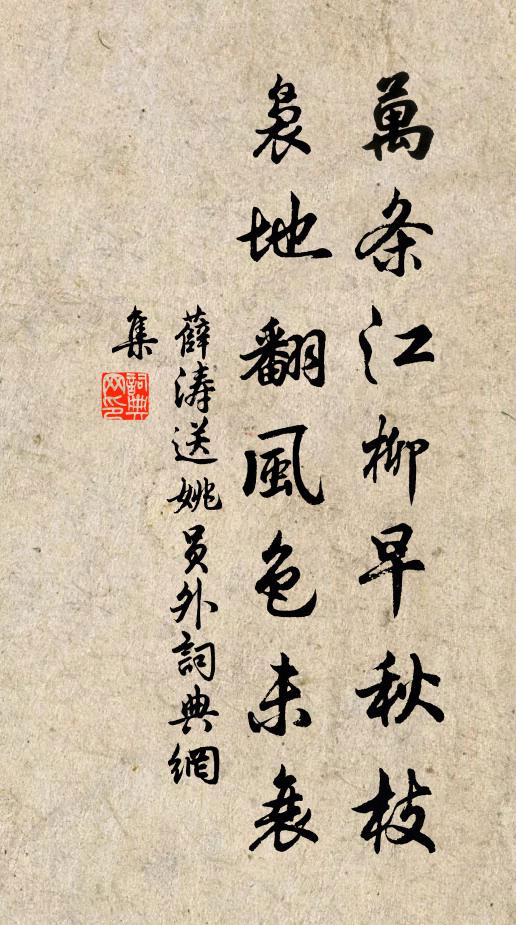 萬条江柳早秋枝
裊地翻風色未衰
薛涛送姚員外詞典網
集
詞典
网印